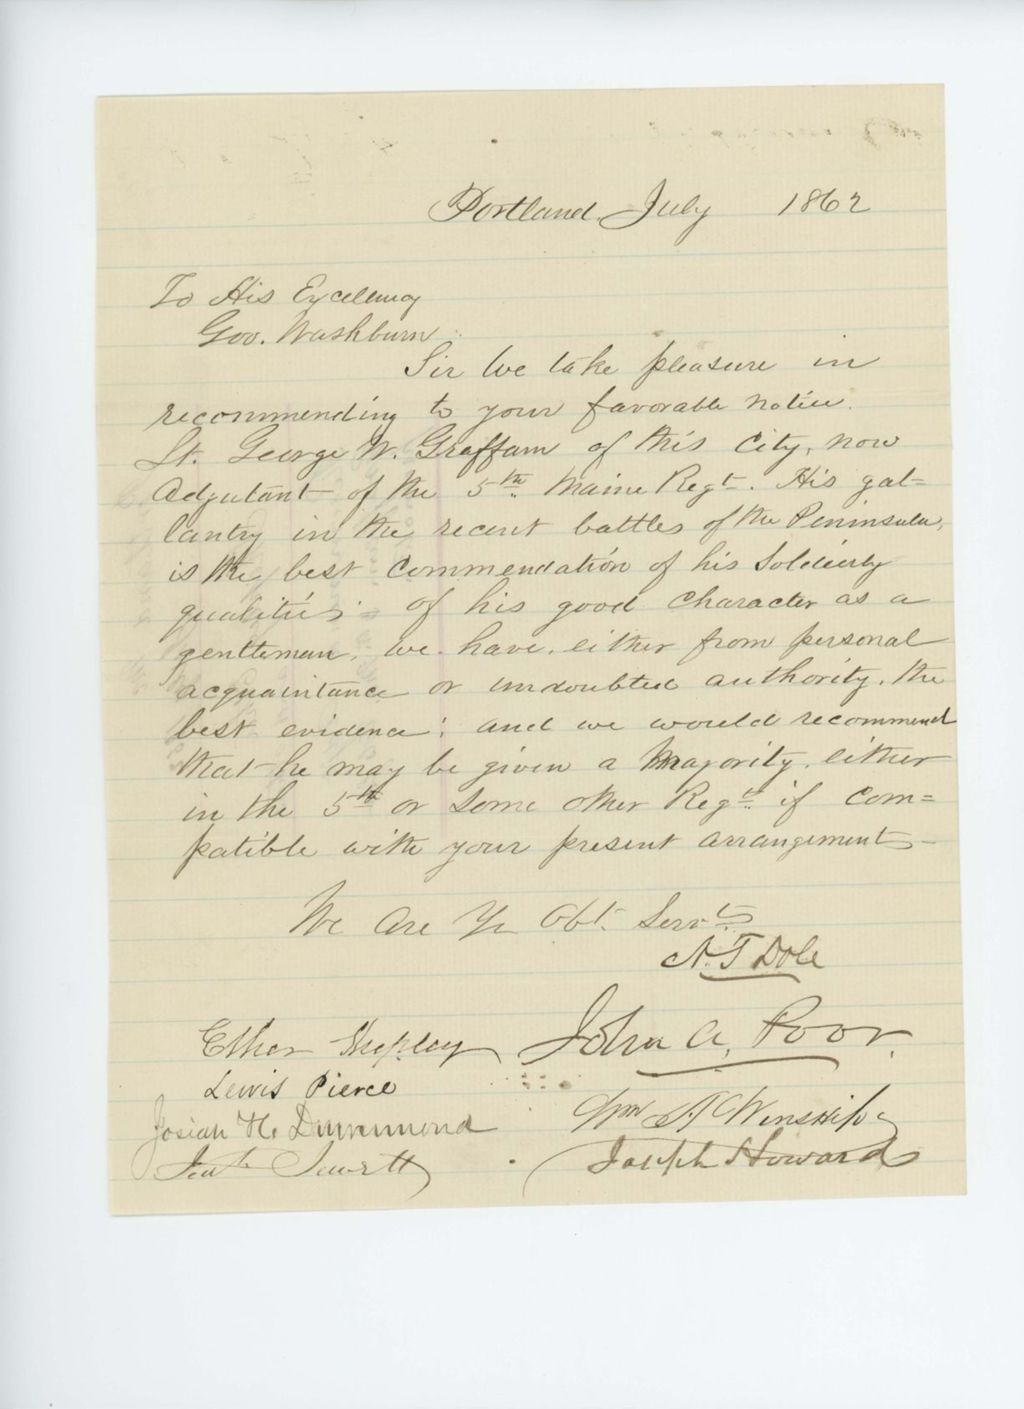 Portland, July 1862
To His Excellency
Gov. Washburn
Sir We take pleasure in
recommending to your favorable notice
Lt. George W. Graffam of this City, now
Adjutant of the 5th Maine Regt. His gal=
lantry in the recent battles of the Peninsula,
is the best Commendation of his Soldierly
qualities; of his good character as a
gentleman, we have, either from personal
acquaintance or undoubted authority, the
best evidence; and we would recommend
that he may be given a Majority, either
in the 5th or Some other Regt. if Com=
patible with your present arrangements
We Are Yr Obt. Servts
A. T. Dole
Ether Shepley
John A. Poor.
Lewis Pierce
Wm H Winship
Josiah H. Drummond
Joseph Howard